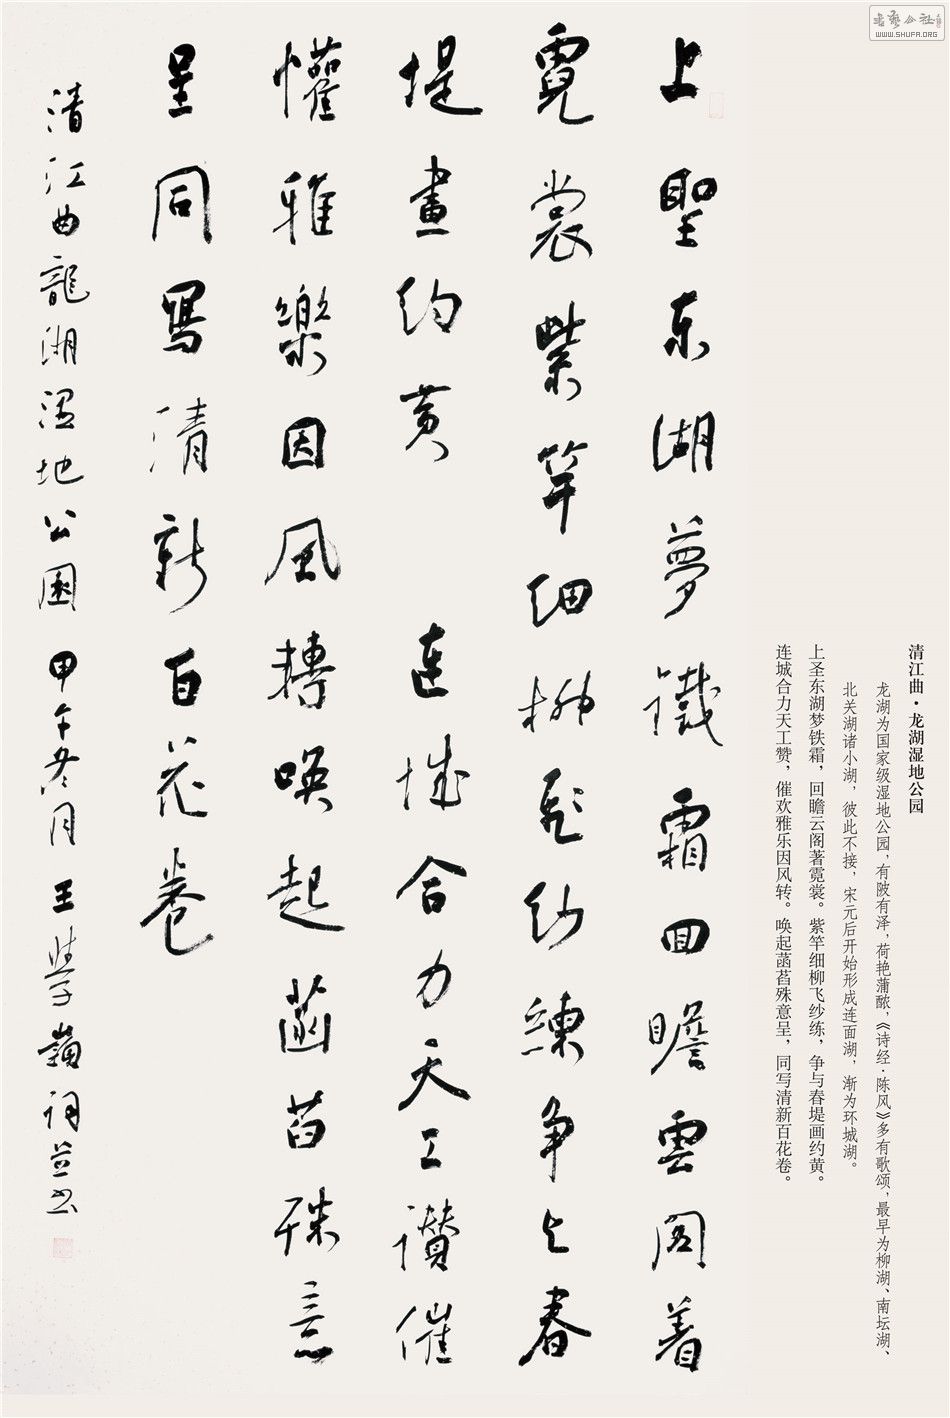 清江曲·龙湖湿地公园
龙湖为国家级湿地公园，有陂有泽，荷艳蒲醲，《诗经·陈风》多有歌颂，最早为柳湖、南坛湖、
北关湖诸小湖，彼此不接，宋元后开始形成连面湖，渐为环城湖。
上圣东湖梦铁霜，回瞻云阁著霓裳。紫竿细柳飞纱练，争与春堤画约黄。
连城合力天工赞，催欢雅乐因风转。唤起菡萏殊意呈，同写清新百花卷。
上聖东湖夢鐵霜回瞻雲阁着
霓裳紫竿细柳飛纱練争与春
堤畫约黄 連城合力天工讃催
懽雅樂因風轉唤起菡萏殊意
呈同寫清新百花卷
清江曲龍湖湿地公園 甲午冬月 王學嶺詞并书
書藝公社
WWW.SHUFA.ORG